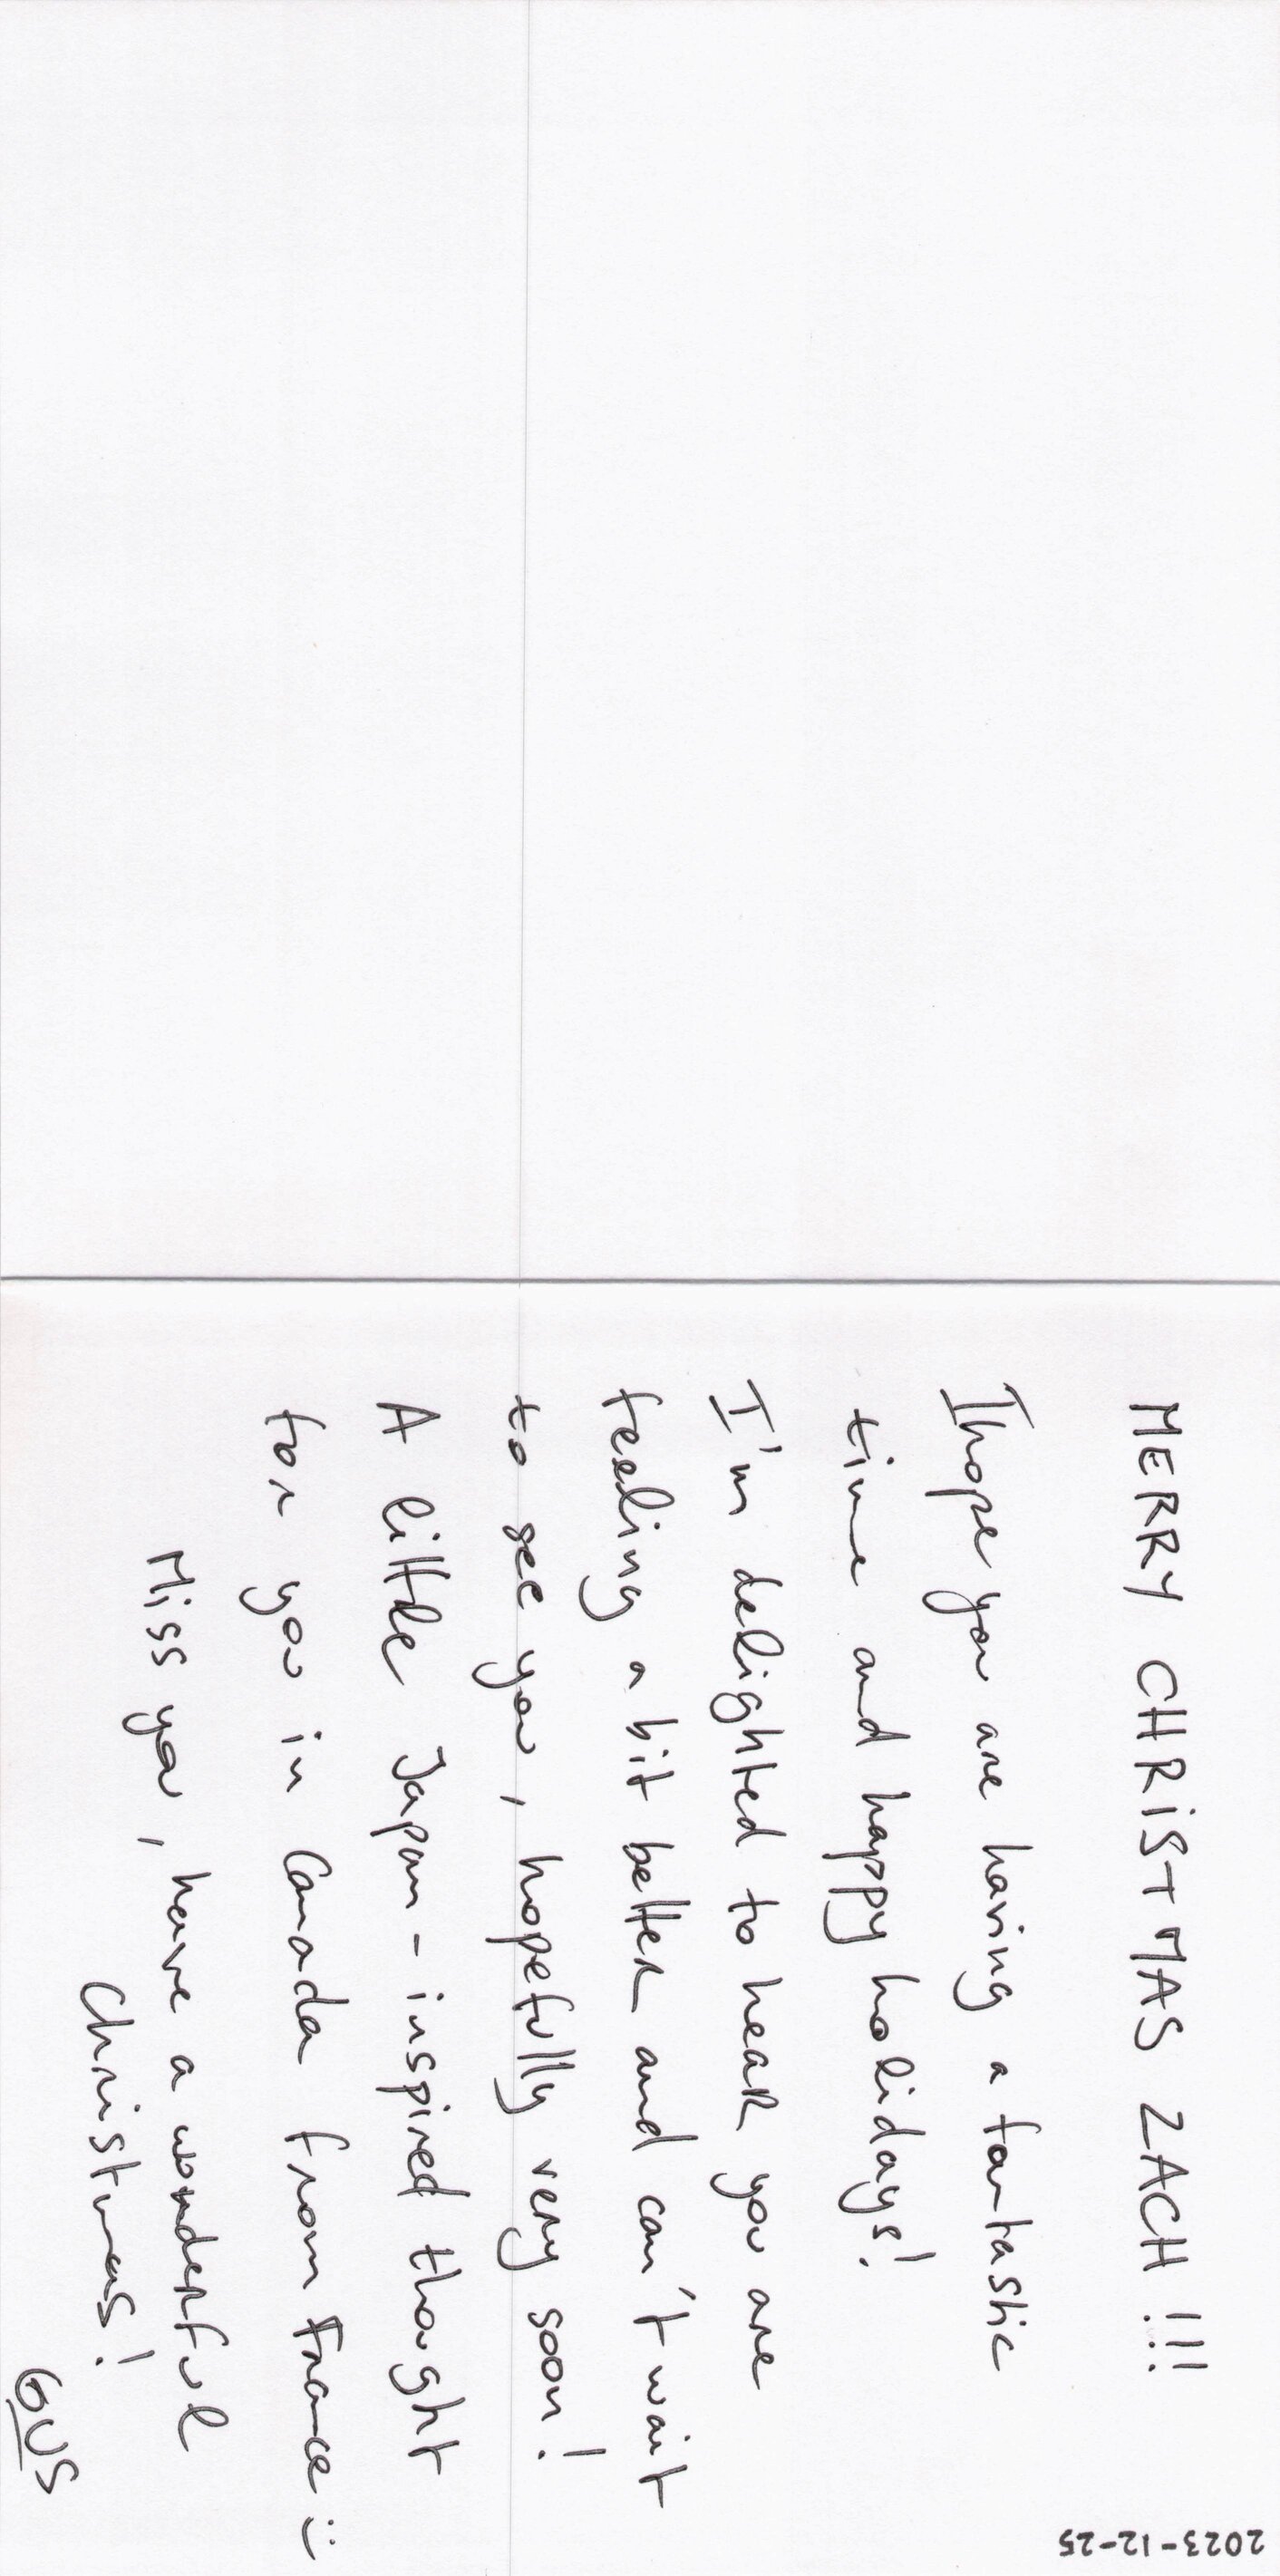 MERRY CHRISTMAS ZACH !!!
I hope you are having a fantastic
time and happy holidays!
I'm delighted to hear you are
feeling a bit better and can't wait
to see you, hopefully very soon!
A little Japan-inspired thought
for you in Canada from France :)
Miss you, have a wonderful
Christmas!
GUS
2023-12-25